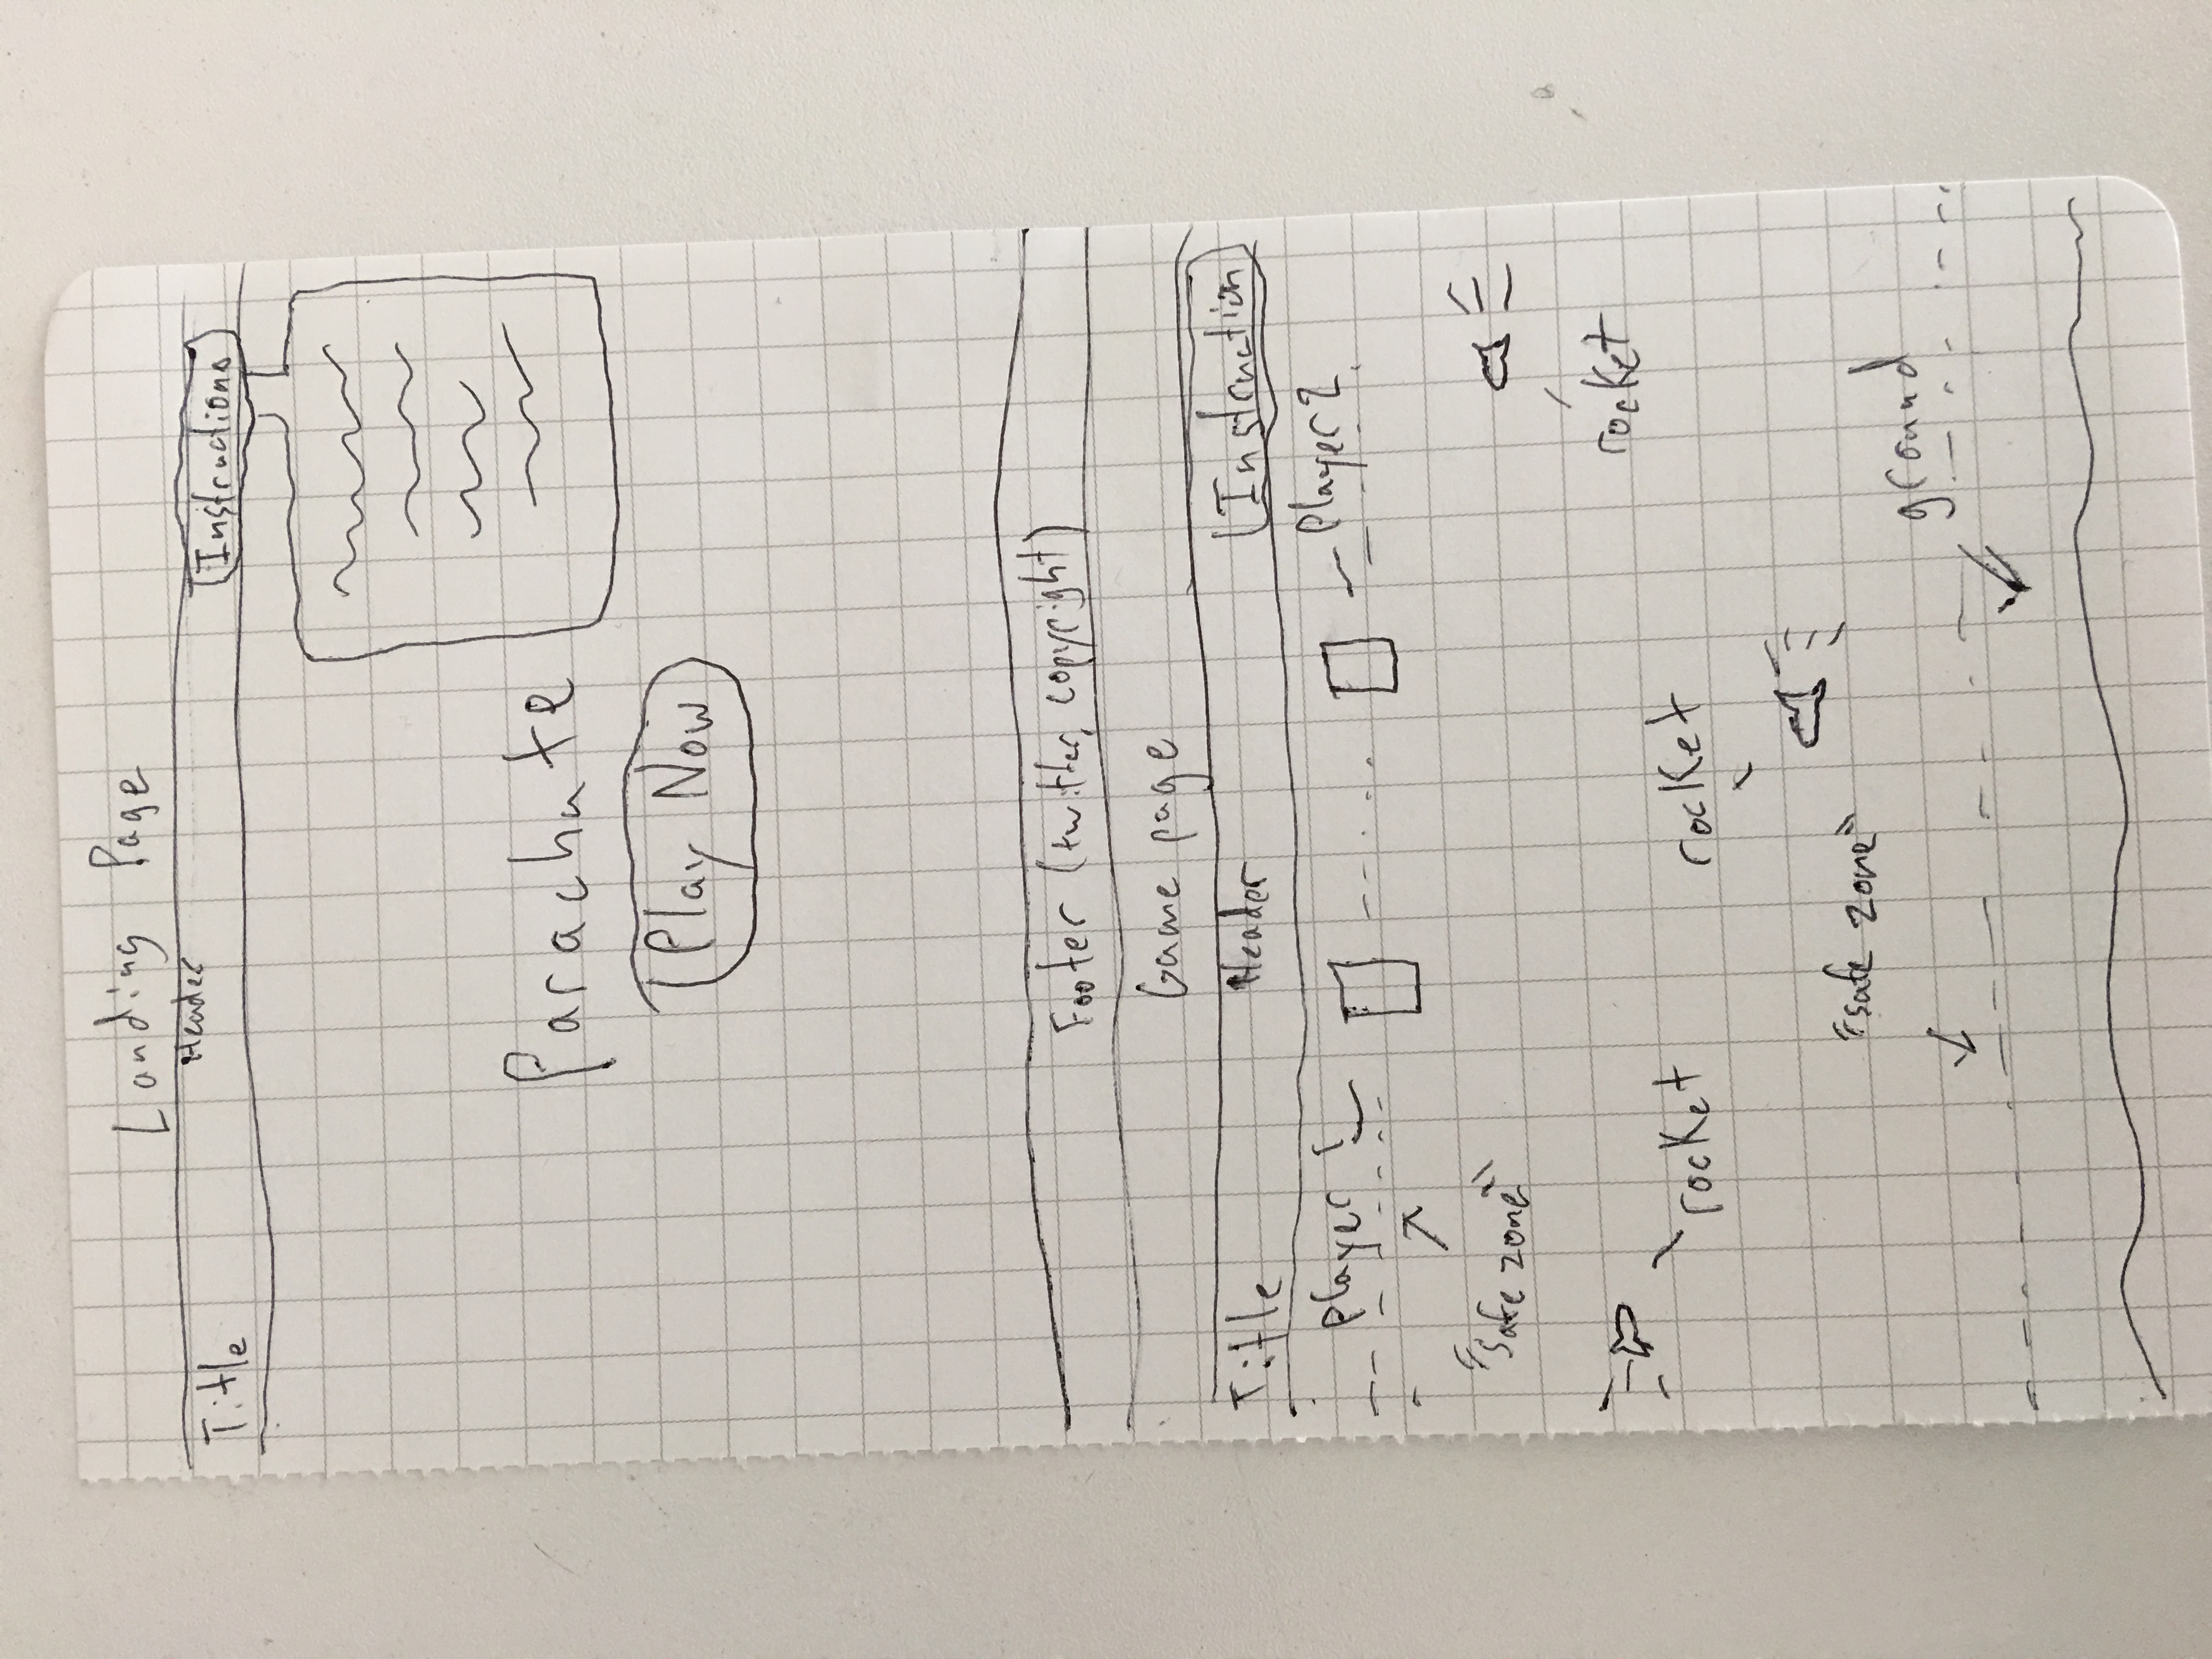 Landing Page
Header
Title
Instructions
Parachute
Play Now
Footer (twitter, copyright)
Game page
Title
Header
Instruction
Player 1
Player 2
"safe zone"
rocket
rocket
rocket
"safe zone"
ground